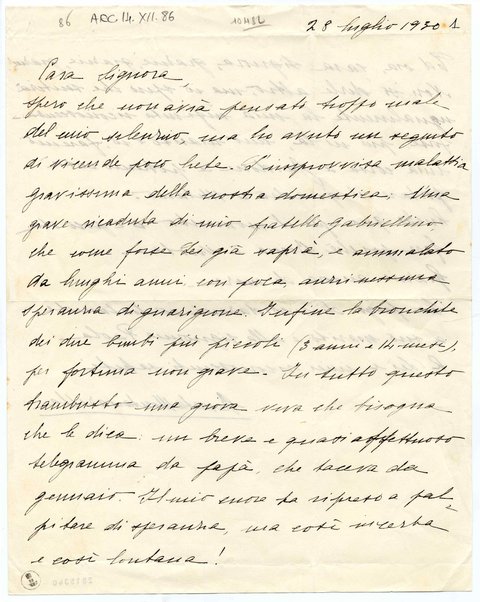 86 ARC.14.XII.86
28 luglio 1930
Cara Signora,
spero che non avrà pensato troppo male
del mio silenzio, ma ho avuto un seguito
di vicende poco liete. L'improvvisa malattia
gravissima della nostra domestica. Una
grave ricaduta di mio fratello Gabriellino
che come forse Lei già saprà, è ammalato
da lunghi anni con poca, anzi nessuna
speranza di guarigione. Infine la bronchite
dei due bimbi più piccoli (3 anni e 14 mesi),
per fortuna non grave. In tutto questo
trambusto una gioia viva che bisogna
che le dica: un breve e quasi affettuoso
telegramma da papà, che taceva da
gennaio. Il mio cuore ha ripreso a pal-
pitare di speranza, ma così incerta
e così lontana!